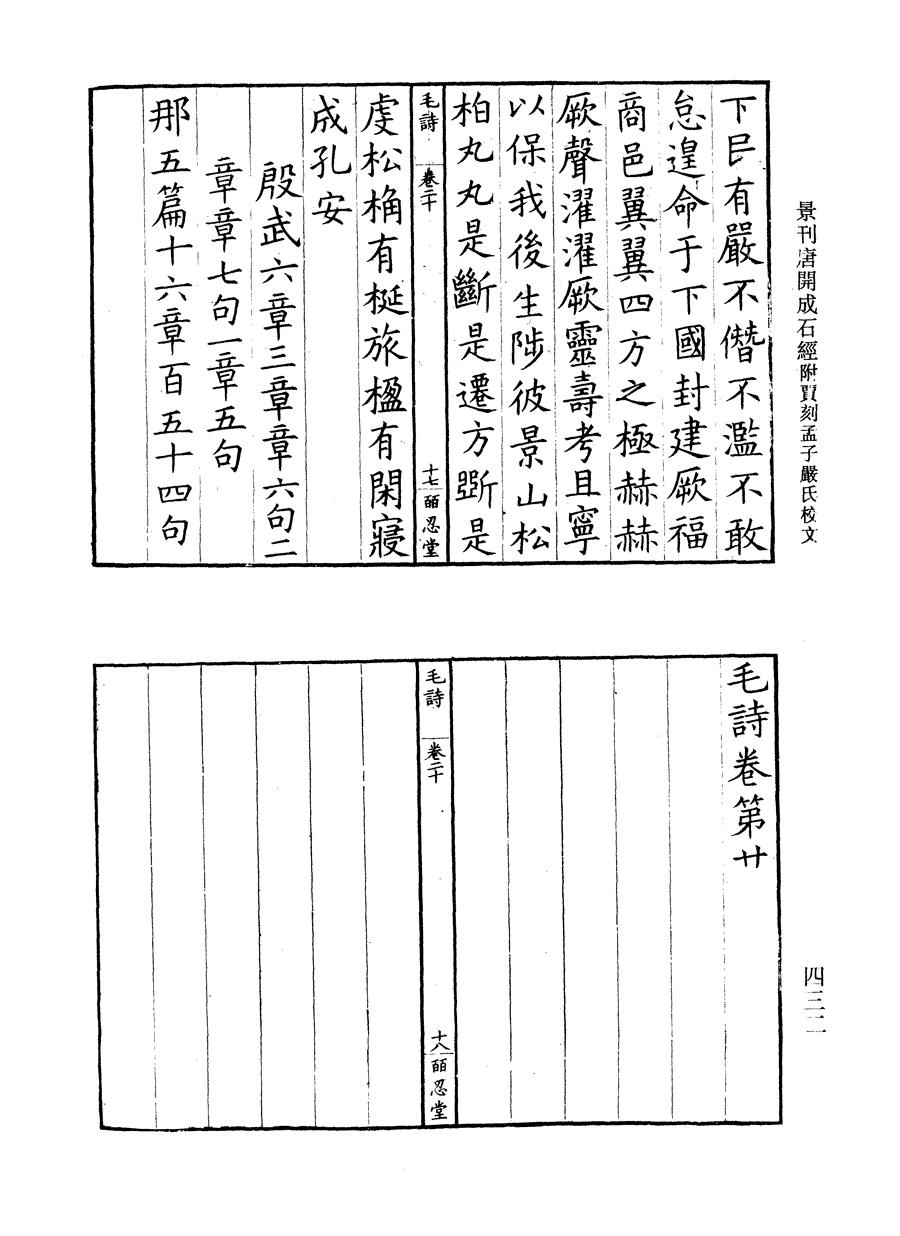 景刊唐開成石經附賈刻孟子嚴氏校文
下民有嚴不僭不濫不敢
怠遑命于下國封建厥福
商邑翼翼四方之極赫赫
厥聲濯濯厥靈壽考且寧
以保我後生陟彼景山松
柏丸丸是斷是遷方斲是
毛詩 卷二十 十七 皕忍堂
虔松桷有梴旅楹有閑寢
成孔安
殷武六章三章章六句二
章章七句一章五句
那五篇十六章百五十四句
毛詩卷第廿
毛詩 卷二十 十八 皕忍堂
四三二